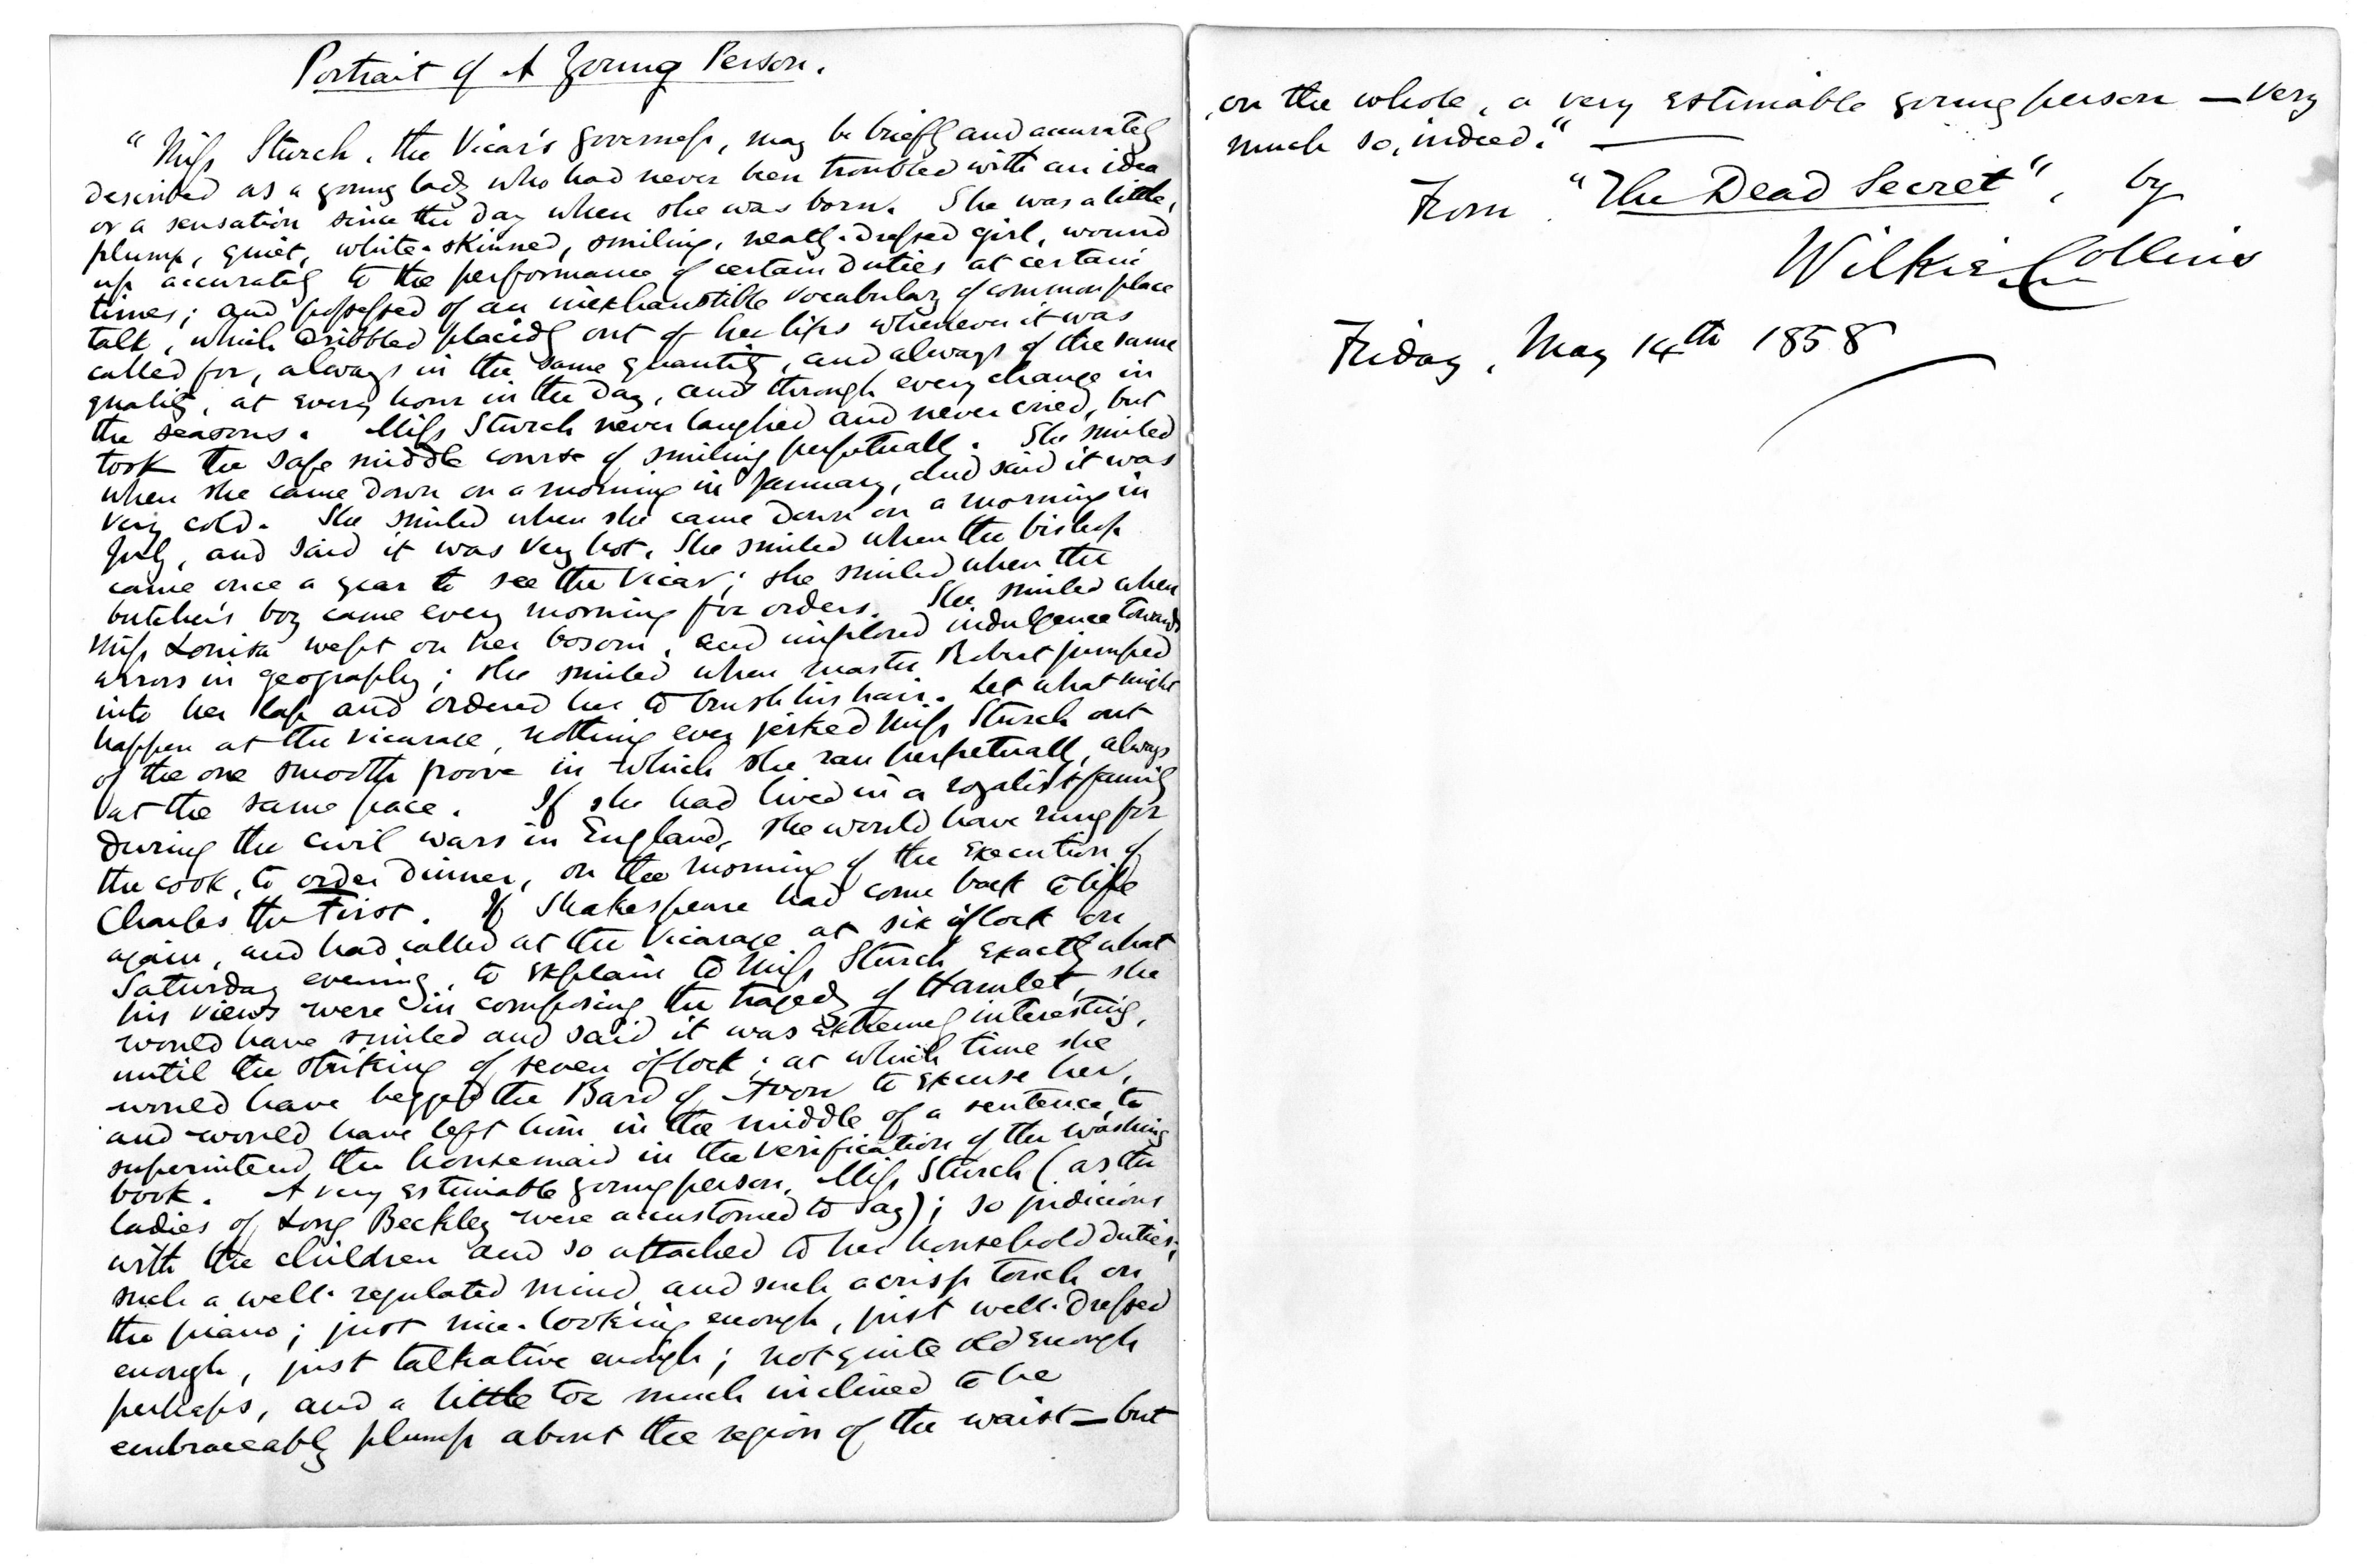 Portrait of A Young Person.
"Miss Sturch, the Vicar's governess, may be briefly and accurately
described as a young lady who had never been troubled with an idea
or a sensation since the day when she was born. She was a little,
plump, quiet, white-skinned, smiling, neatly-dressed girl, wound
up accurately to the performance of certain duties at certain
times; and possessed of an inexhaustible vocabulary of commonplace
talk, which dribbled placidly out of her lips whenever it was
called for, always in the same quantity, and always of the same
quality, at every hour in the day, and through every change in
the seasons. Miss Sturch never laughed and never cried, but
took the safe middle course of smiling perpetually. She smiled
when she came down on a morning in January, and said it was
very cold. She smiled when she came down on a morning in
July, and said it was very hot. She smiled when the bishop
came once a year to see the Vicar; she smiled when the
butcher's boy came every morning for orders. She smiled when
Miss Louisa wept on her bosom, and implored indulgence towards
errors in geography; she smiled when Master Robert jumped
into her lap and ordered her to brush his hair. Let what might
happen at the Vicarage, nothing ever jerked Miss Sturch out
of the one smooth groove in which she ran perpetually, always
at the same pace. If she had lived in a royalist family
during the civil wars in England, she would have rung for
the cook, to order dinner, on the morning of the execution of
Charles the First. If Shakespeare had come back to life
again, and had called at the Vicarage at six o'clock on
Saturday evening, to explain to Miss Sturch exactly what
his views were in composing the tragedy of Hamlet, she
would have smiled and said it was extremely interesting,
until the striking of seven o'clock; at which time she
would have begged the Bard of Avon to excuse her,
and would have left him in the middle of a sentence, to
superintend the housemaid in the verification of the washing
book. A very estimable young person, Miss Sturch (as the
ladies of Long Beckley were accustomed to say); so judicious
with the children and so attached to her household duties;
such a well-regulated mind, and such a crisp touch on
the piano; just nice-looking enough, just well-dressed
enough, just talkative enough; not quite old enough
perhaps, and a little too much inclined to be
embraceably plump about the region of the waist—but
on the whole, a very estimable young person—very
much so, indeed."—
From "The Dead Secret", by
Wilkie Collins
Friday, May 14th 1858